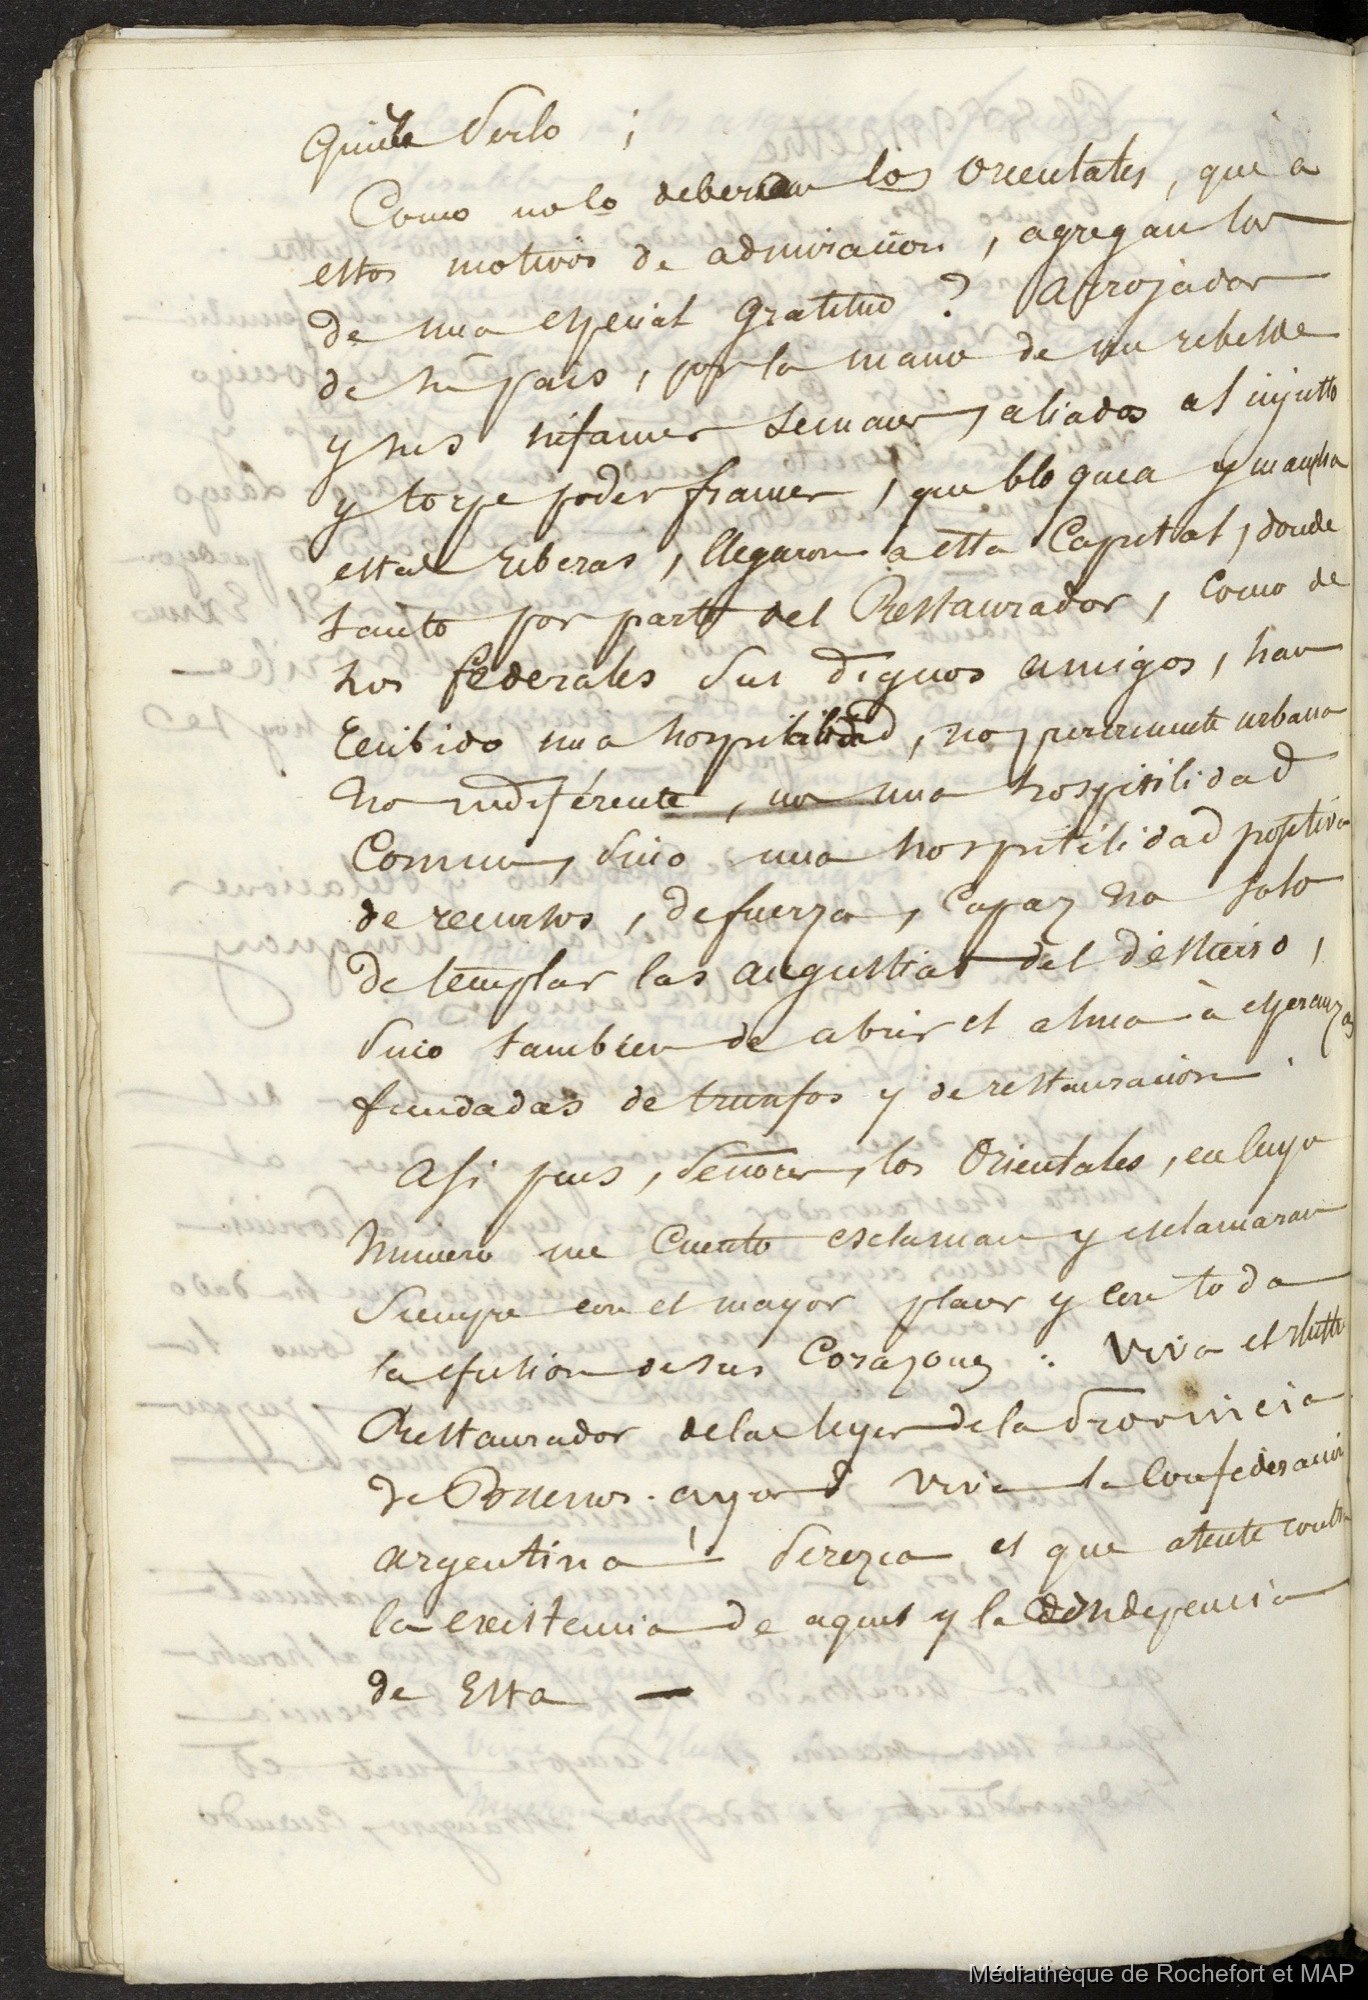 quiere serlo ;
Como no lo deberian los Orientales, que a
estos motivos de admiracion, agregan los
de una especial gratitud ? Arrojados
de su pais, por la mano de un rebelde
y sus infames secuaces, aliados al injusto
y torpe poder frances, que bloquea y mancha
estas riberas, llegaron a esta Capital, donde
tanto por parte del Restaurador, como de
los federales sus dignos amigos, han
recibido una hospitalidad, no puramente urbana
no indiférente, no una hospitilidad
Comun, sino una hospitilidad positiva
de recursos, de fuerza, capaz no solo
de templar las angustias del destierro,
sino tambien de abrir el alma à esperanzas
fundadas de triunfos y de restauracion.
Asi pues, señores, los Orientales, en cuyo
numero me cuento esclaman y esclamaran
siempre con el mayor placer y con toda
la efusion de sus Corazones : Viva el Ilustre
Restaurador de las leyes de la Provincia
de Buenos-ayres ! Viva la Confederacion
argentina ! Perezca el que atente contra
la existencia de aquel y la independencia
de Esta —
Médiathèque de Rochefort et MAP